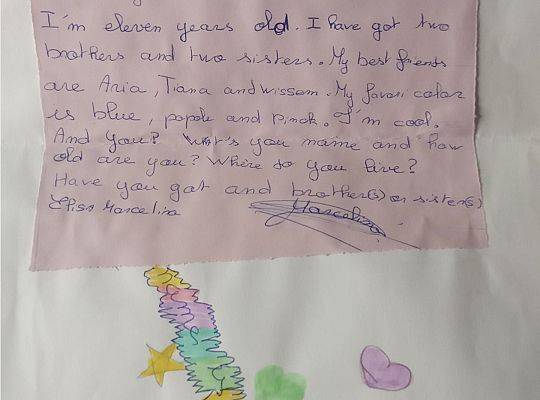 I'm eleven years old. I have got two
brothers and two sisters. My best friends
are Aria, Tiana and wissem. My favori color
is blue, popole and Pinok. I'm cool.
And you? What's you maime and how
old are you? Where do you live?
Have you got and brother(s) or sister(s)
Elisa Marcelina
Marcelina